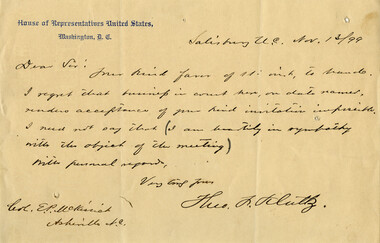 House of Representatives United States,
Washington, D. C.
Salisbury N.C. Nov. 13/99
Dear Sir:
Your kind favor of 11" inst, to hand.
I regret that business in court here, on date named,
renders acceptance of your kind invitation impossible.
I need not say that (I am heartily in sympathy
with the object of the meeting)
With personal regards,
Very truly yours
Theo. F. Kluttz.
Col. E.P. McKissick
Asheville N.C.